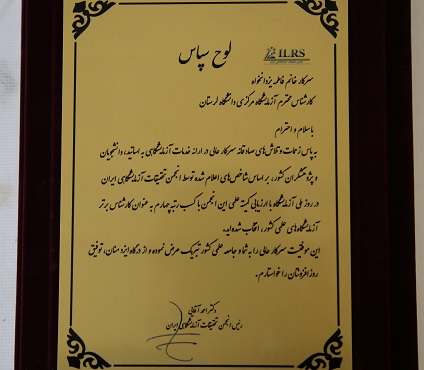 لوح سپاس
ILRS
سرکار خانم فاطمه یزدانخواه
کارشناس محترم آزمایشگاه مرکزی دانشگاه لرستان
با سلام و احترام
به پاس زحمات و تلاش‌های صادقانه سرکار عالی در ارائه خدمات آزمایشگاهی به اساتید، دانشجویان
و پژوهشگران کشور، بر اساس شاخص‌های اعلام شده توسط انجمن تحقیقات آزمایشگاهی ایران
در روز ملی آزمایشگاه با ارزیابی کمیته علمی این انجمن با کسب رتبه چهارم به عنوان کارشناس برتر
آزمایشگاه‌های علمی کشور، انتخاب شده‌اید.
این موفقیت سرکار عالی را به شما و جامعه علمی کشور تبریک عرض نموده و از درگاه ایزد منان، توفیق
روز افزونتان را خواستارم.
دکتر احمد آقائی
رئیس انجمن تحقیقات آزمایشگاهی ایران